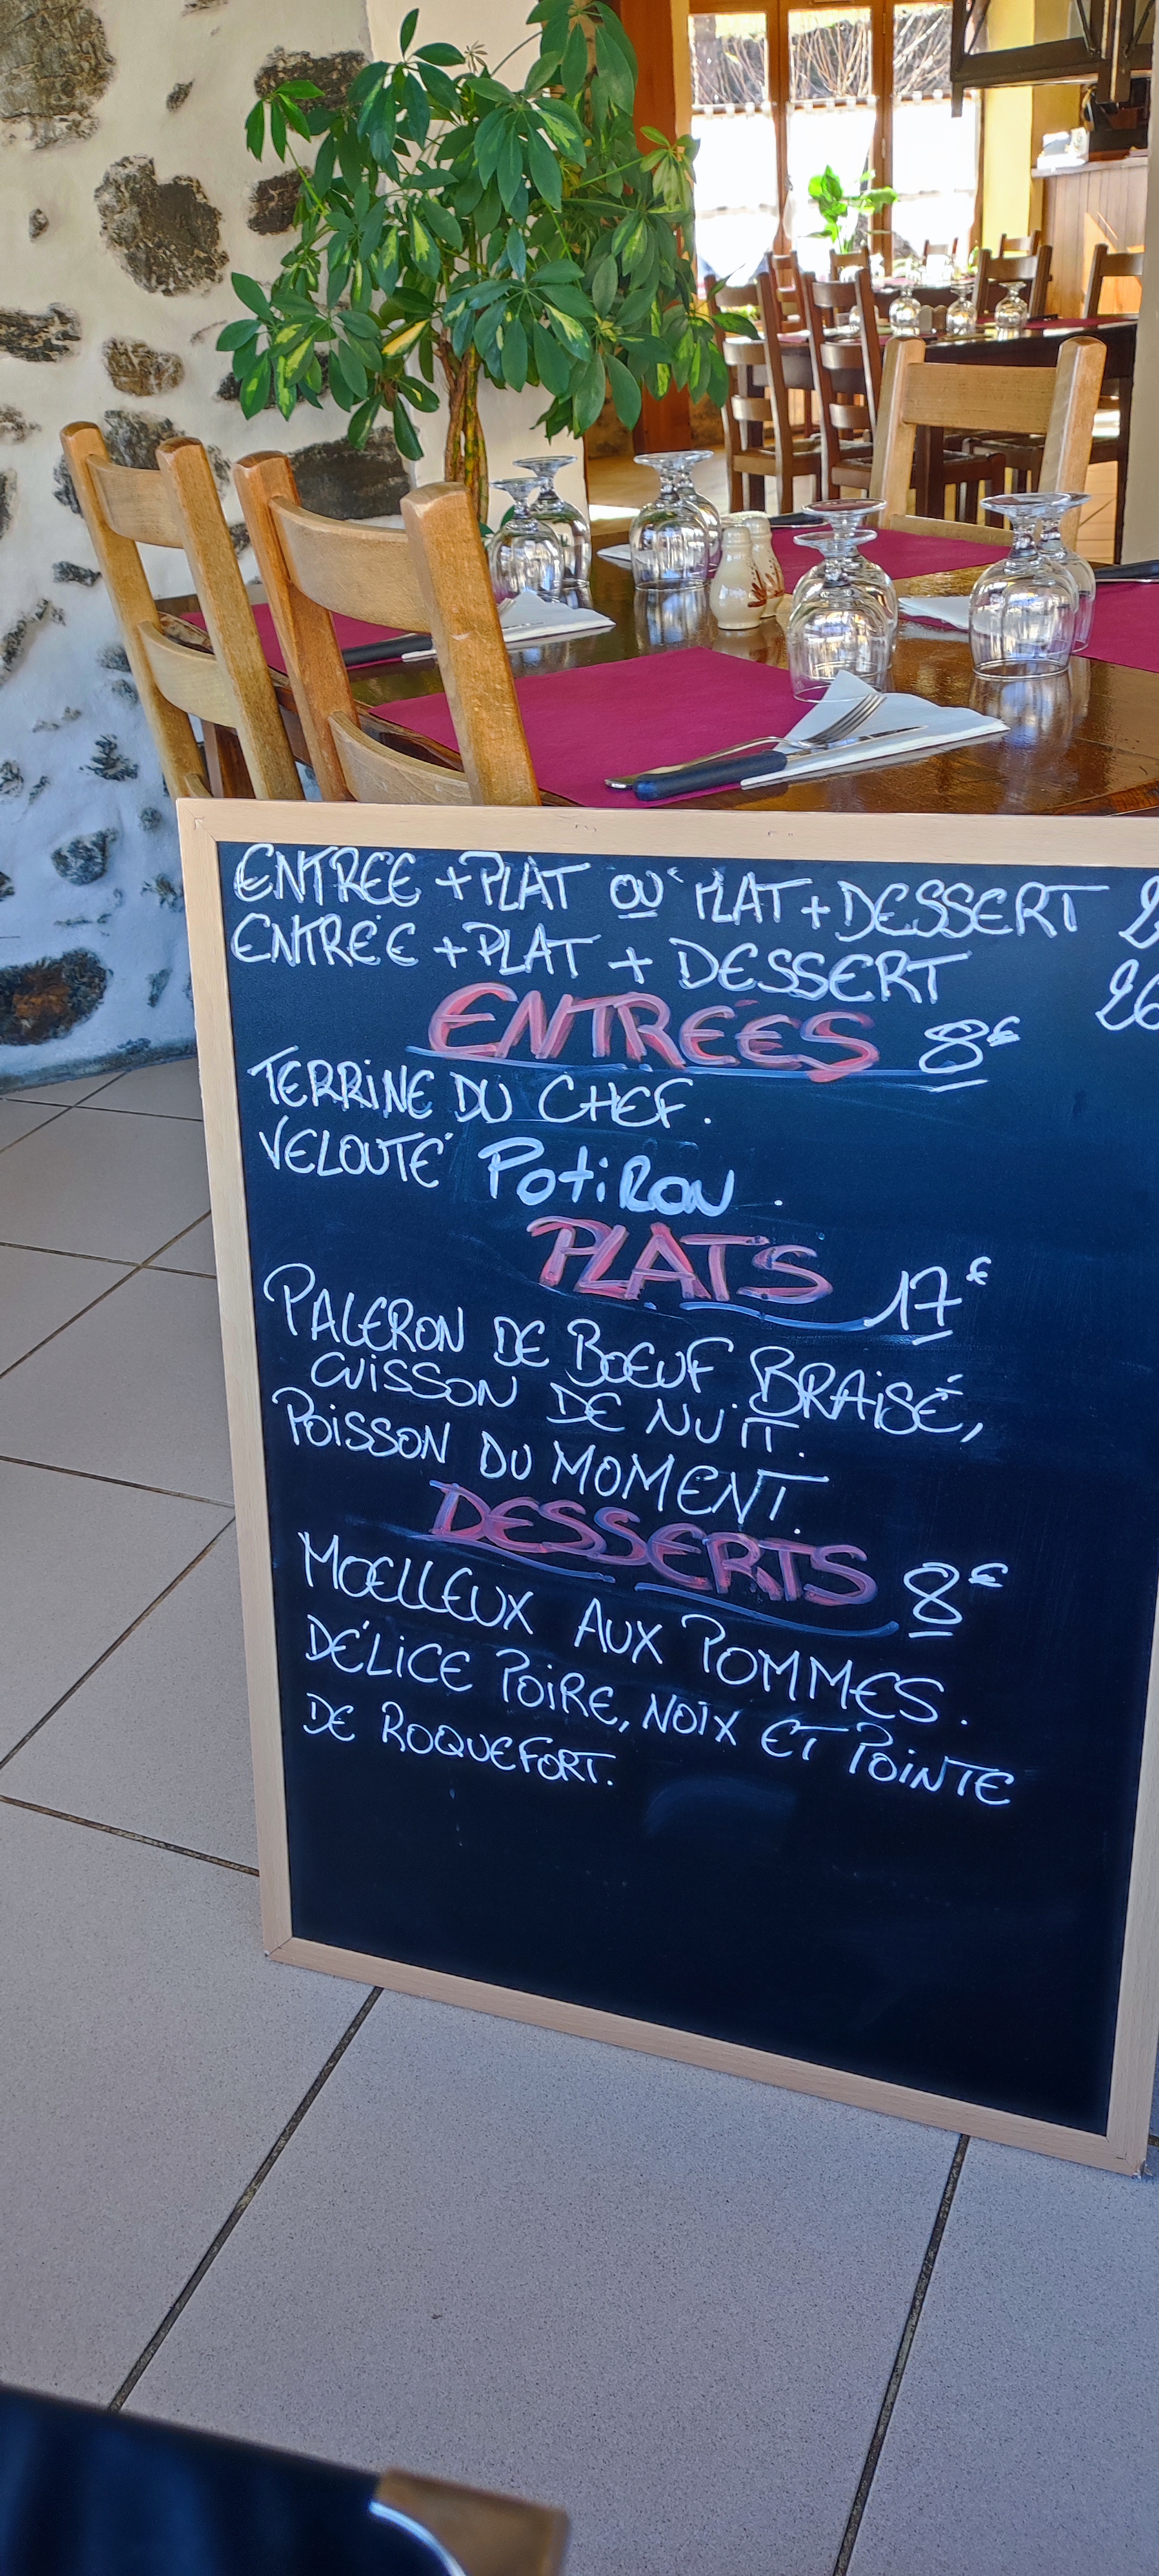 ENTRÉE + PLAT OU PLAT + DESSERT
ENTRÉE + PLAT + DESSERT 26
ENTRÉES 8€
TERRINE DU CHEF.
VELOUTÉ POTIRON.
PLATS 17€
PALERON DE BOEUF BRAISÉ,
CUISSON DE NUIT.
POISSON DU MOMENT.
DESSERTS 8€
MOELLEUX AUX POMMES.
DÉLICE POIRE, NOIX ET POINTE
DE ROQUEFORT.